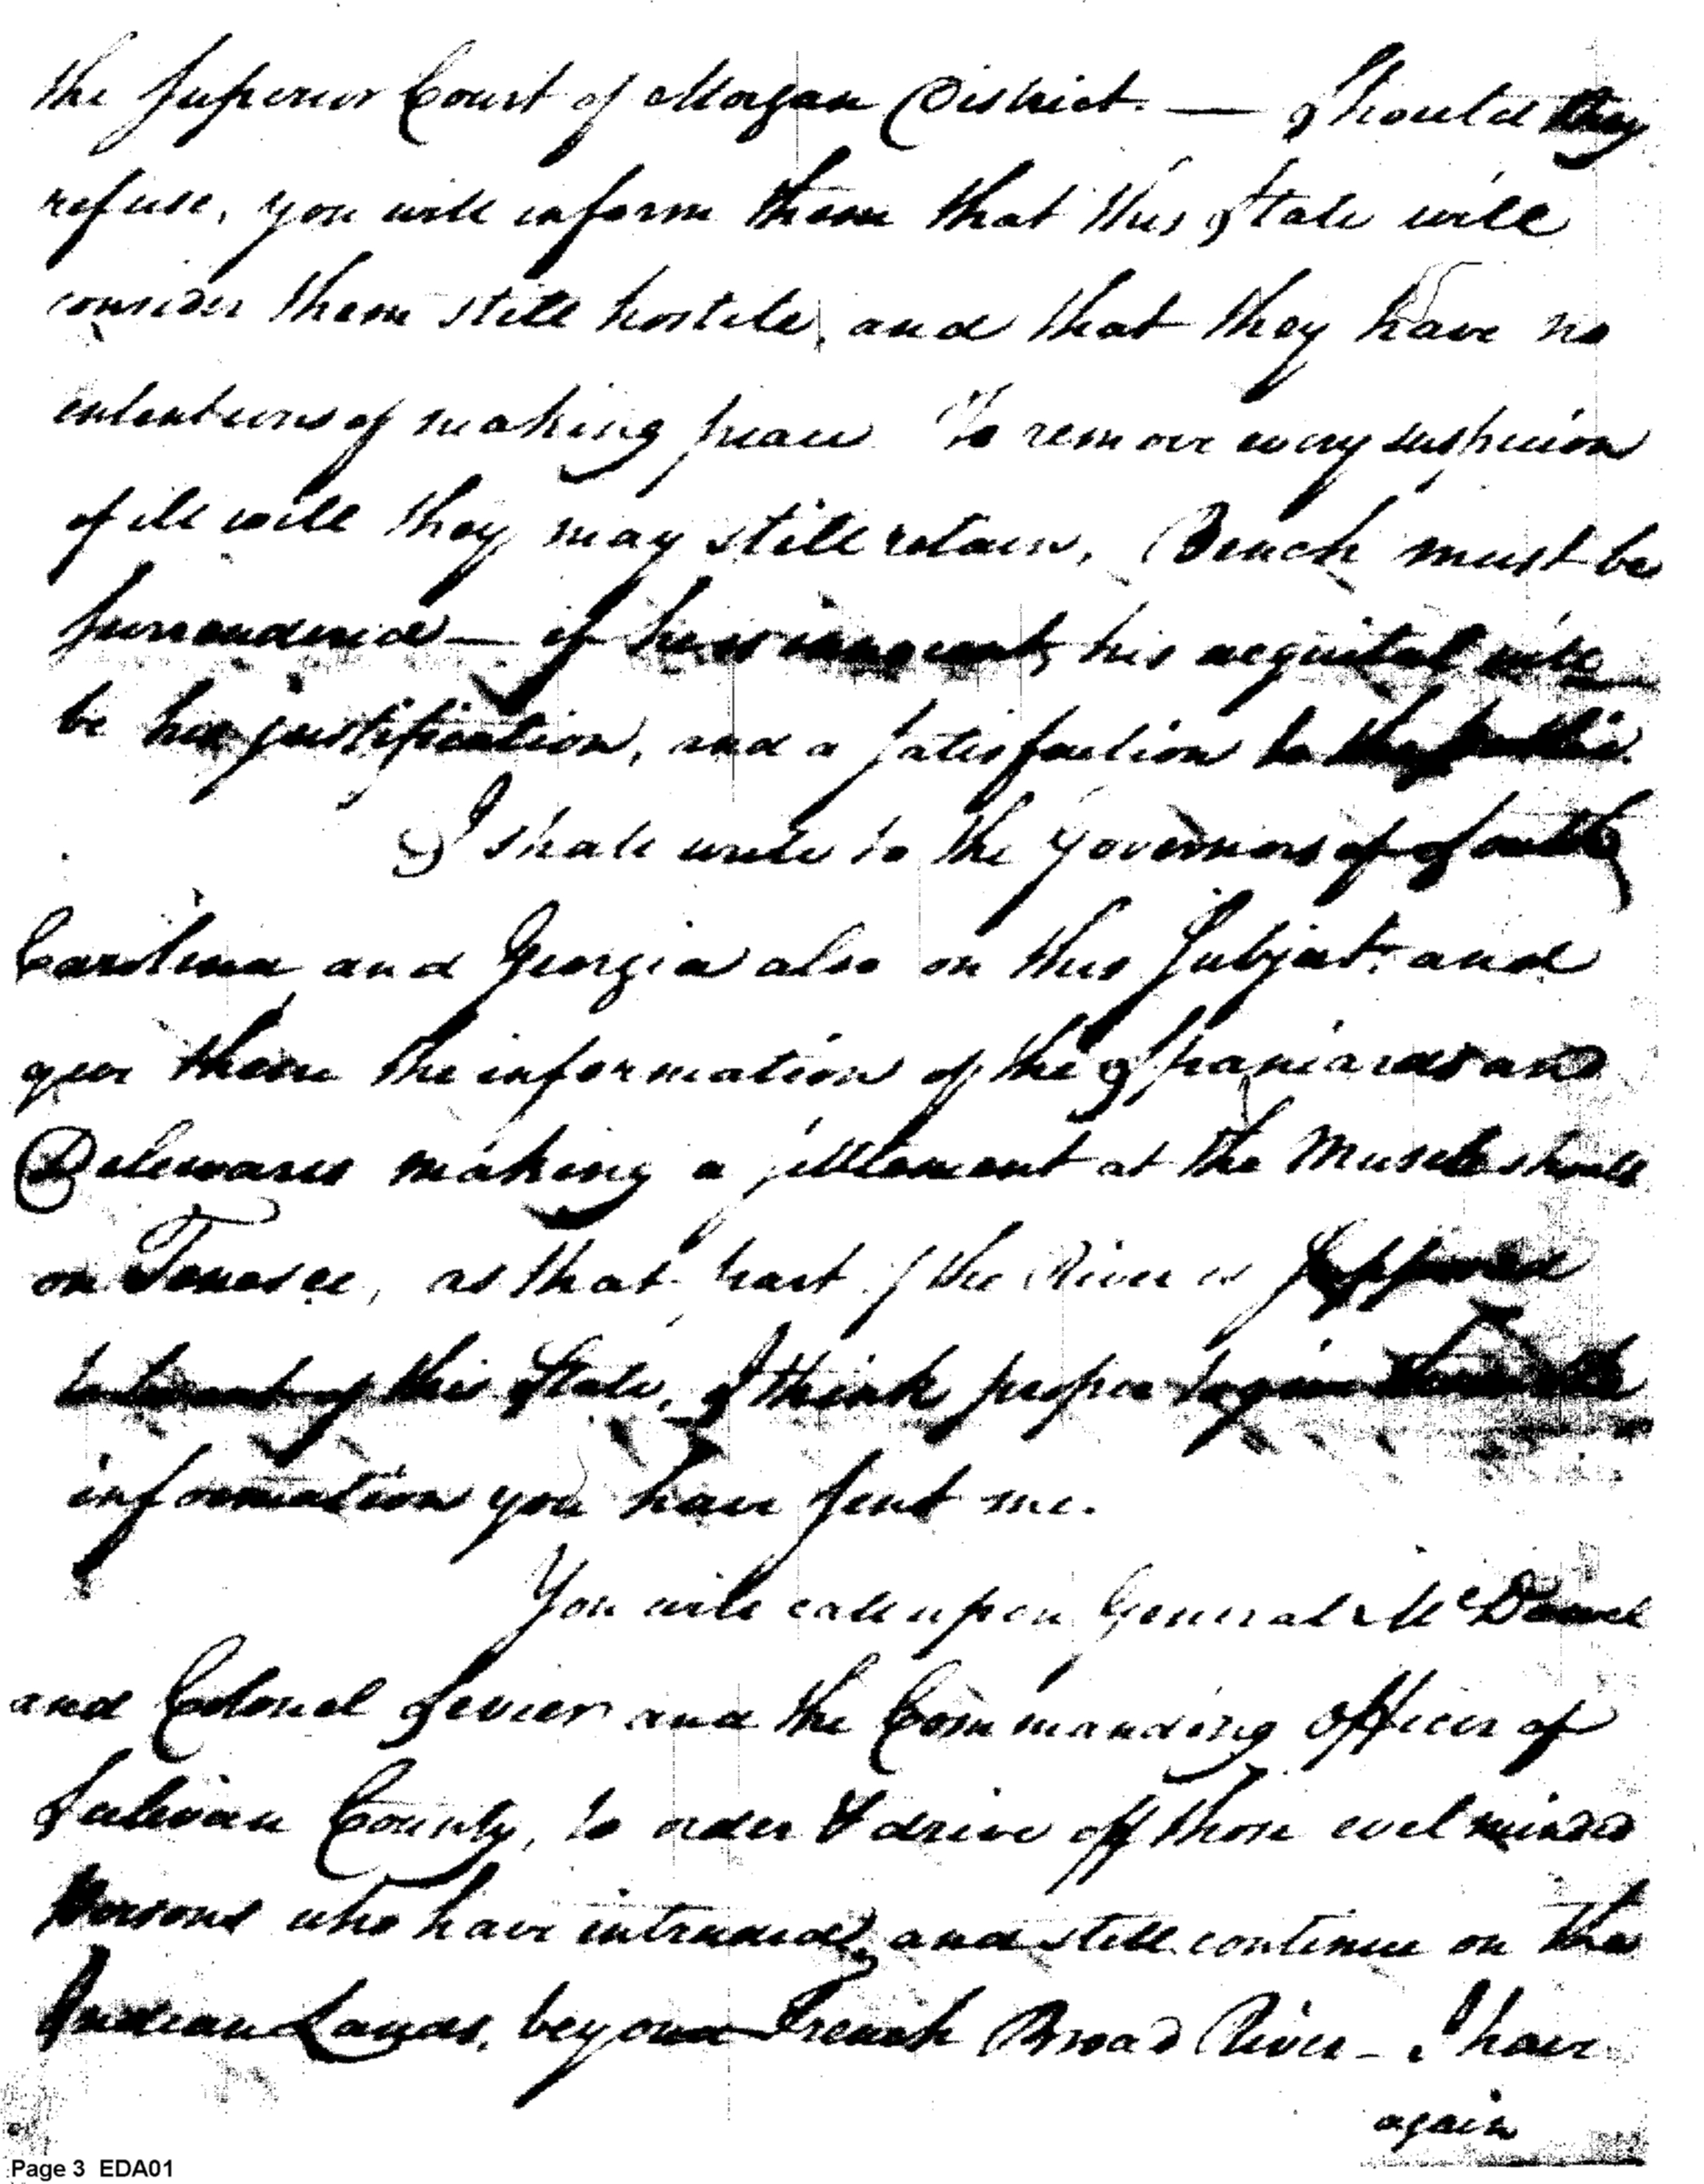 the Superior Court of Morgan District. — Should they
refuse, you will inform them that this State will
consider them still hostile, and that they have no
intentions of making peace To remove every suspicion
of ill will they may still retain, Bench must be
surrendered — if he is innocent, his acquital will
be his justification, and a satisfaction to the public.
I shall write to the Governors of South
Carolina and Georgia also on this Subject, and
give them the information of the Spaniards and
Delewares making a settlement at the Muscle shoals
on Tenesee, as that part of the River is supposed
to be out of this State, I think proper to give them the
information you have sent me.
You will call upon General McDowel
and Colonel Sevier and the Commanding Officer of
Sulivan County, to order & drive off those evel minded
persons who have intruded, and still continue on the
Indian Lands, beyond French Broad River — I have
again
Page 3 EDA01